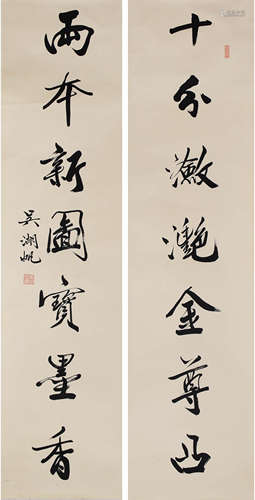 十分潋灩金尊凸
兩本新圖寶墨香
吳湖帆